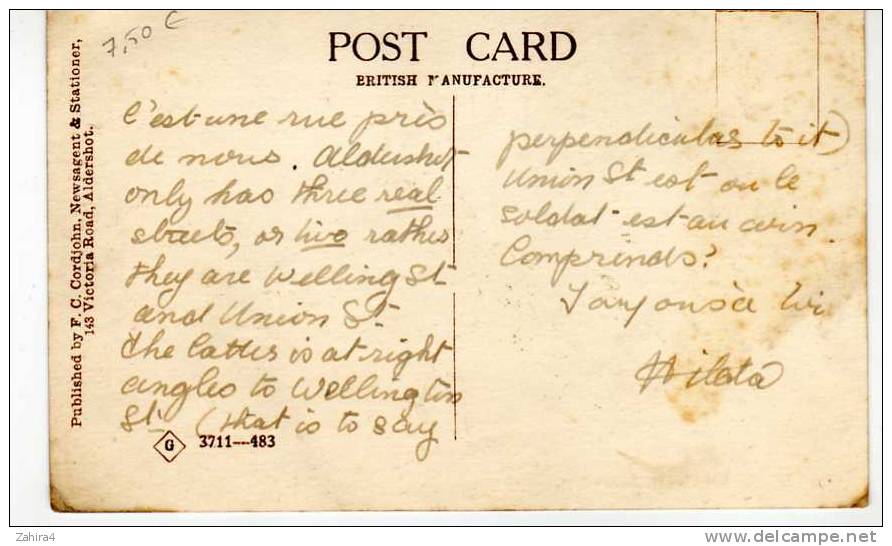 7,50 €
POST CARD
BRITISH MANUFACTURE.
Published by F. C. Cordjohn, Newsagent & Stationer,
143 Victoria Road, Aldershot.
C'est une rue près
de nous. Aldershot
only has three real
streets, or two rather
they are Welling St
and Union St
The latter is at right
angles to Wellington
St. (that is to say
perpendicular to it)
Union St est ou le
soldat est au coin.
Comprends?
Hilda
G 3711—483
Zahira4
http://www.delcampe.net